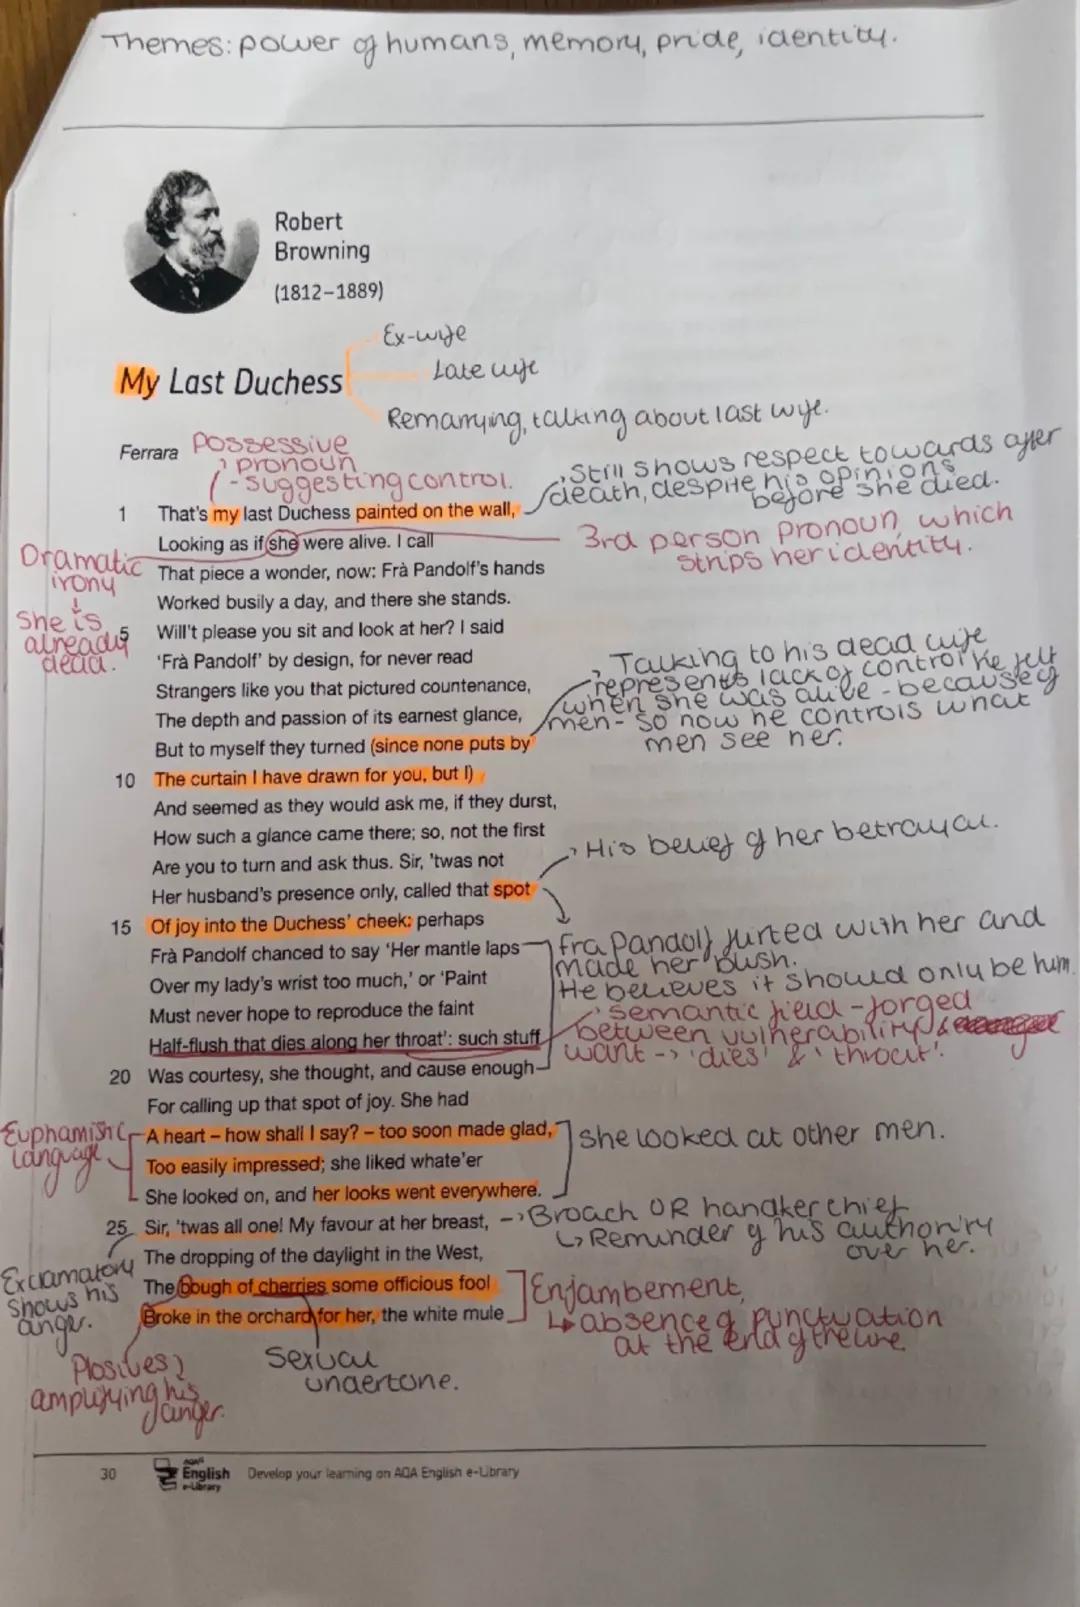 Themes: power of humans, memory, pride, identity.
Robert
Browning
(1812–1889)
Ex-wife
Late wife
Remarrying, talking about last wife.
My Last Duchess
Ferrara
Possessive
pronoun
- suggesting control.
Still shows respect towards after
death, despite his opinions
before she died.
1 That's my last Duchess painted on the wall,
Looking as if she were alive. I call
3rd person pronoun, which
strips her identity.
Dramatic
irony
She is
already
dead.
That piece a wonder, now: Frà Pandolf's hands
Worked busily a day, and there she stands.
5 Will't please you sit and look at her? I said
'Frà Pandolf' by design, for never read
Strangers like you that pictured countenance,
The depth and passion of its earnest glance,
But to myself they turned (since none puts by
10 The curtain I have drawn for you, but I)
Talking to his dead wife
represents lack of control he felt
when she was alive - because of
men - so now he controls what
men see her.
And seemed as they would ask me, if they durst,
How such a glance came there; so, not the first
Are you to turn and ask thus. Sir, 'twas not
Her husband's presence only, called that spot
15 Of joy into the Duchess' cheek: perhaps
His belief of her betrayal.
Frà Pandolf chanced to say 'Her mantle laps
Over my lady's wrist too much,' or 'Paint
Must never hope to reproduce the faint
Half-flush that dies along her throat': such stuff
20 Was courtesy, she thought, and cause enough
Fra Pandolf flirted with her and
made her blush.
He believes it should only be him.
semantic field - forged
between vulnerability &
want -> 'dies' & 'throat'.
For calling up that spot of joy. She had
A heart – how shall I say? – too soon made glad,
Too easily impressed; she liked whate'er
She looked on, and her looks went everywhere.
Euphamistic
language
she looked at other men.
25 Sir, 'twas all one! My favour at her breast,
Broach OR handkerchief
↳ Reminder of his authority
over her.
The dropping of the daylight in the West,
The bough of cherries some officious fool
Broke in the orchard for her, the white mule
Exclamatory
shows his
anger.
Enjambement,
↳ absence of punctuation
at the end of the line.
Plosives
amplifying his
anger.
Sexual
undertone.
30
AQA
English
e-Library
Develop your learning on AQA English e-Library